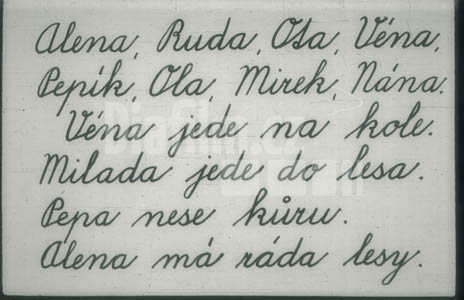 Alena, Ruda, Ota, Véna,
Pepík, Ola, Mirek, Nána.
Véna jede na kole.
Milada jede do lesa.
Pepa nese kůru.
Alena má ráda lesy.